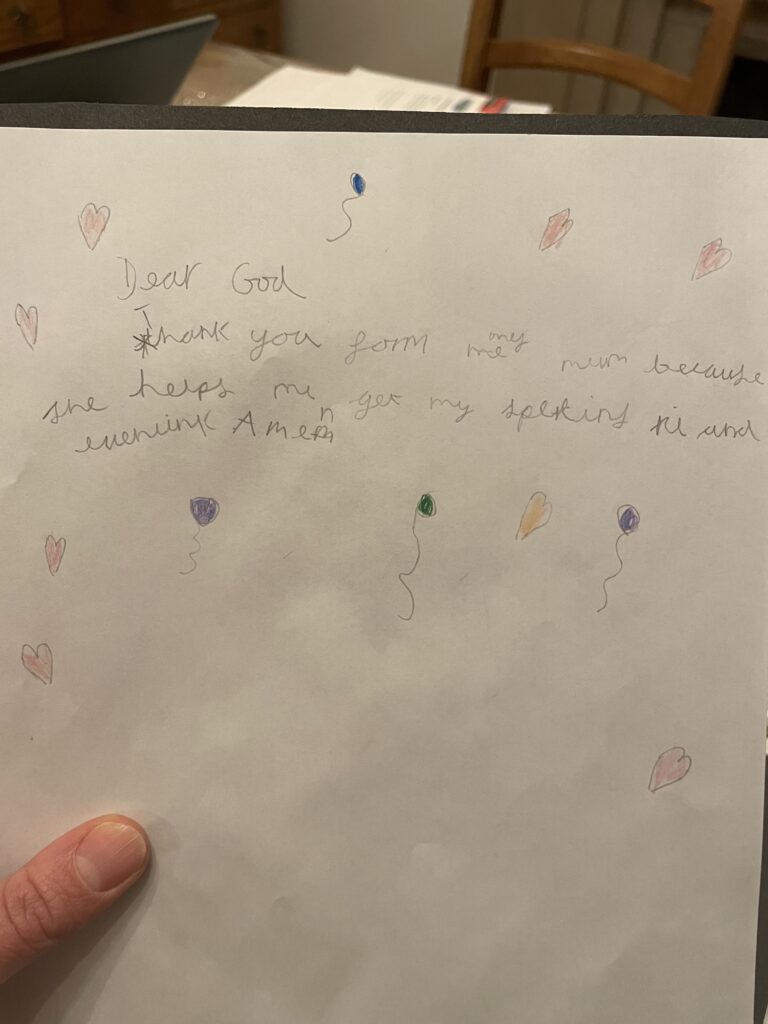 Dear God
Thank you form my mum because
she helps me get my spekins ri and
evenink Amen